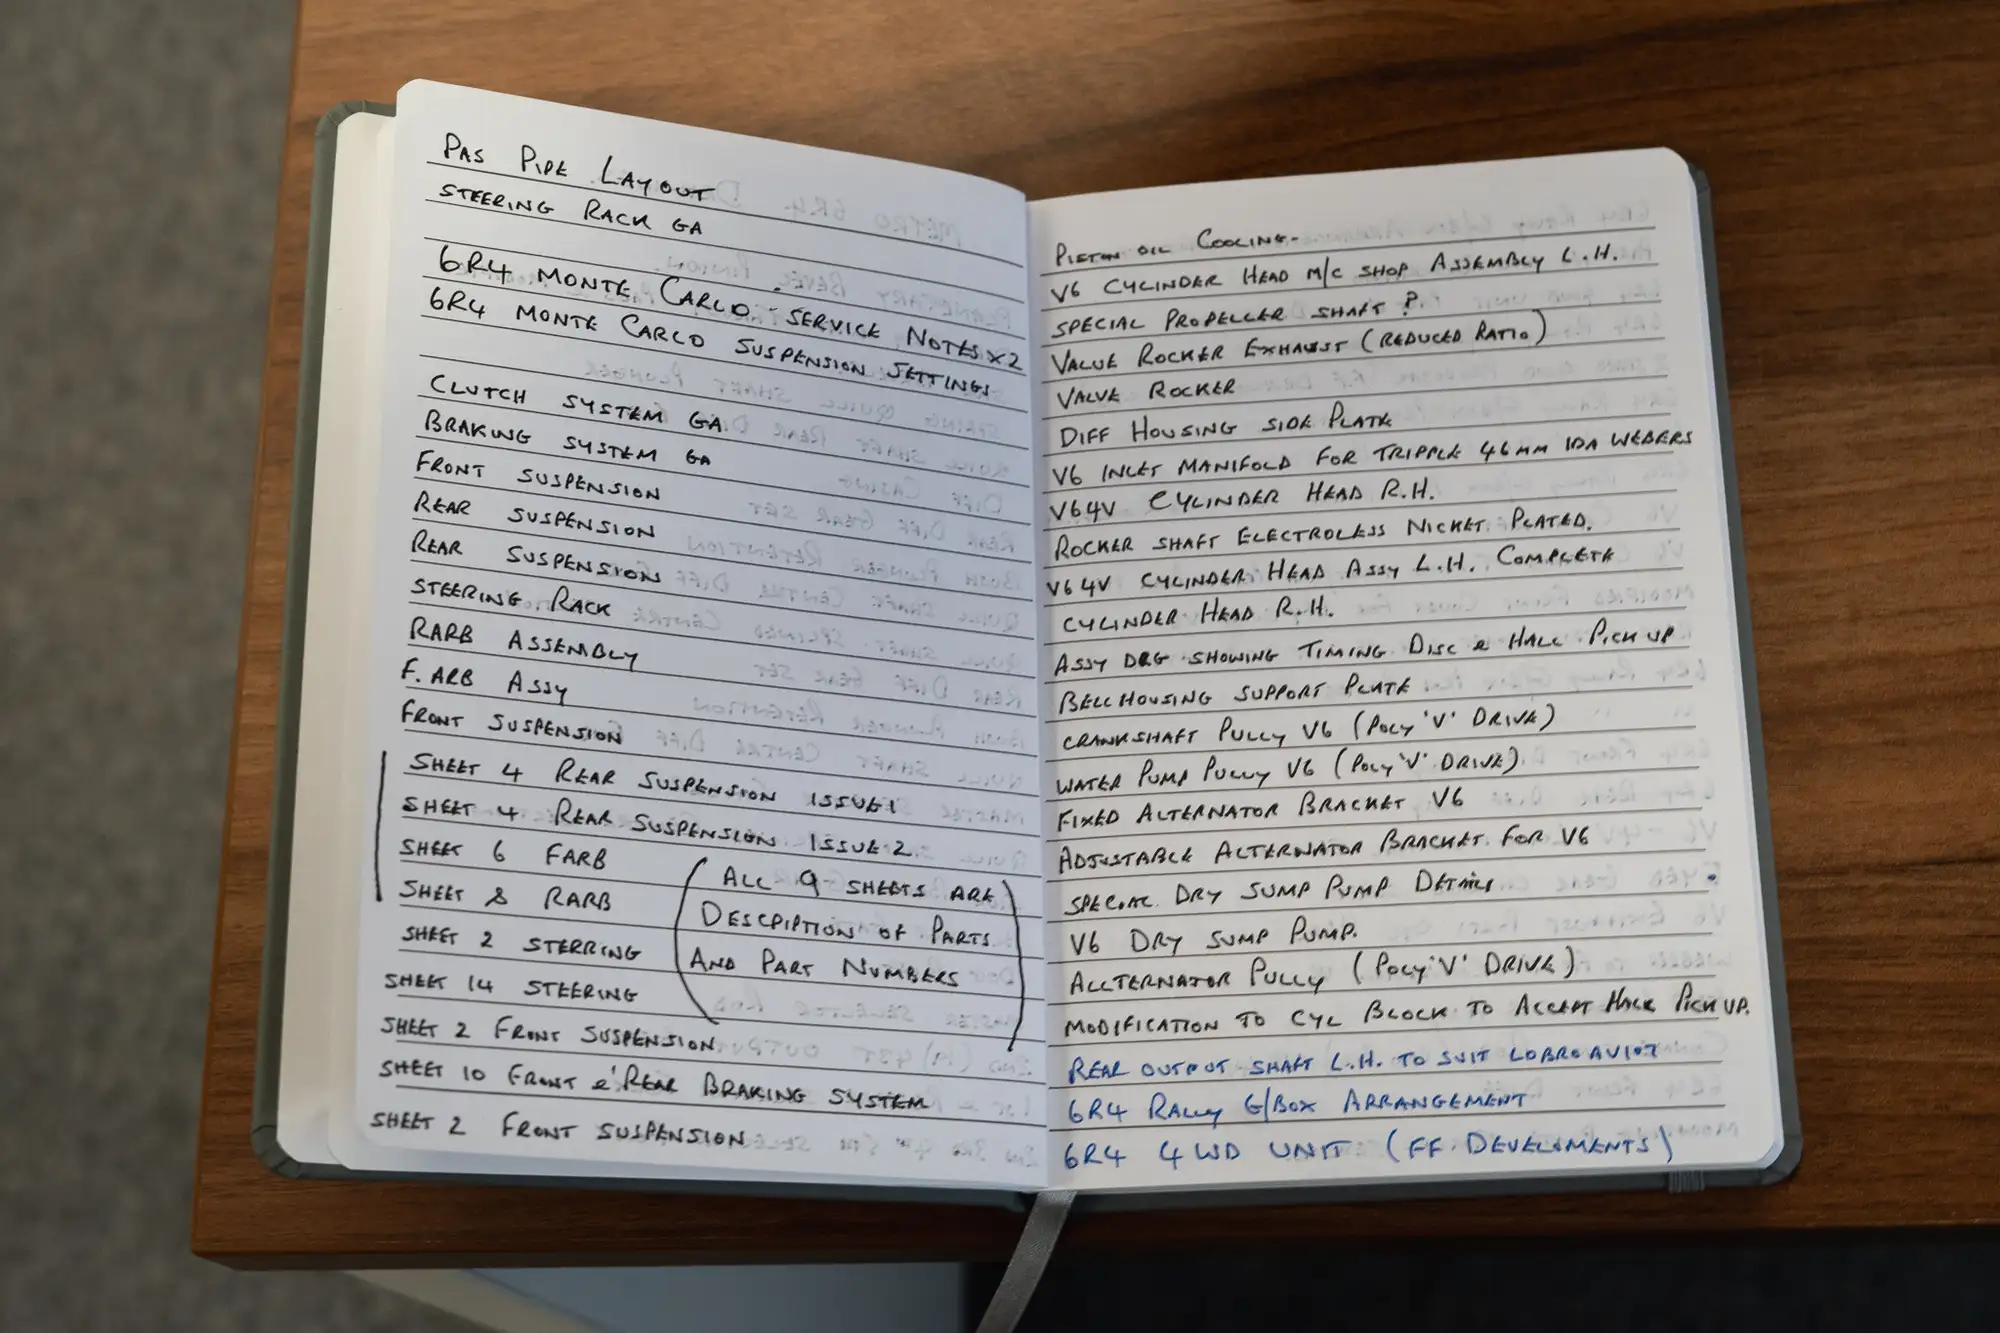 PAS PIPE LAYOUT
STEERING RACK GA
6R4 MONTE CARLO SERVICE NOTES x2
6R4 MONTE CARLO SUSPENSION SETTINGS
CLUTCH SYSTEM GA
BRAKING SYSTEM GA
FRONT SUSPENSION
REAR SUSPENSION
REAR SUSPENSION
STEERING RACK
RARB ASSEMBLY
F. ARB ASSY
FRONT SUSPENSION
SHEET 4 REAR SUSPENSION ISSUE 1
SHEET 4 REAR SUSPENSION ISSUE 2
SHEET 6 FARB
SHEET 8 RARB
SHEET 2 STERRING
SHEET 14 STEERING
SHEET 2 FRONT SUSPENSION
SHEET 10 FRONT & REAR BRAKING SYSTEM
SHEET 2 FRONT SUSPENSION
(ALL 9 SHEETS ARE
DESCPIPTION OF PARTS
AND PART NUMBERS)
PISTON OIL COOLING.
V6 CYLINDER HEAD M/C SHOP ASSEMBLY L.H.
SPECIAL PROPELLER SHAFT ?
VALUE ROCKER EXHAUST (REDUCED RATIO)
VALVE ROCKER
DIFF HOUSING SIDE PLATE
V6 INLET MANIFOLD FOR TRIPPLE 46MM IDA WEBERS
V64V CYLINDER HEAD R.H.
ROCKER SHAFT ELECTROLESS NICKEL PLATED.
V64V CYLINDER HEAD ASSY L.H. COMPLETE
CYLINDER HEAD R.H.
ASSY DRG SHOWING TIMING DISC & HALL PICK UP
BELLHOUSING SUPPORT PLATE
CRANKSHAFT PULLY V6 (POLY 'V' DRIVE)
WATER PUMP PULLY V6 (POLY 'V' DRIVE)
FIXED ALTERNATOR BRACKET V6
ADJUSTABLE ALTERNATOR BRACKET FOR V6
SPECIAL DRY SUMP PUMP DETAILS
V6 DRY SUMP PUMP.
ALLTERNATOR PULLY (POLY 'V' DRIVE)
MODIFICATION TO CYL BLOCK TO ACCEPT HALL PICK UP.
REAR OUTPUT SHAFT L.H. TO SUIT LOBRO
6R4 RALLY G/BOX ARRANGEMENT
6R4 4WD UNIT (FF DEVELOMENTS)